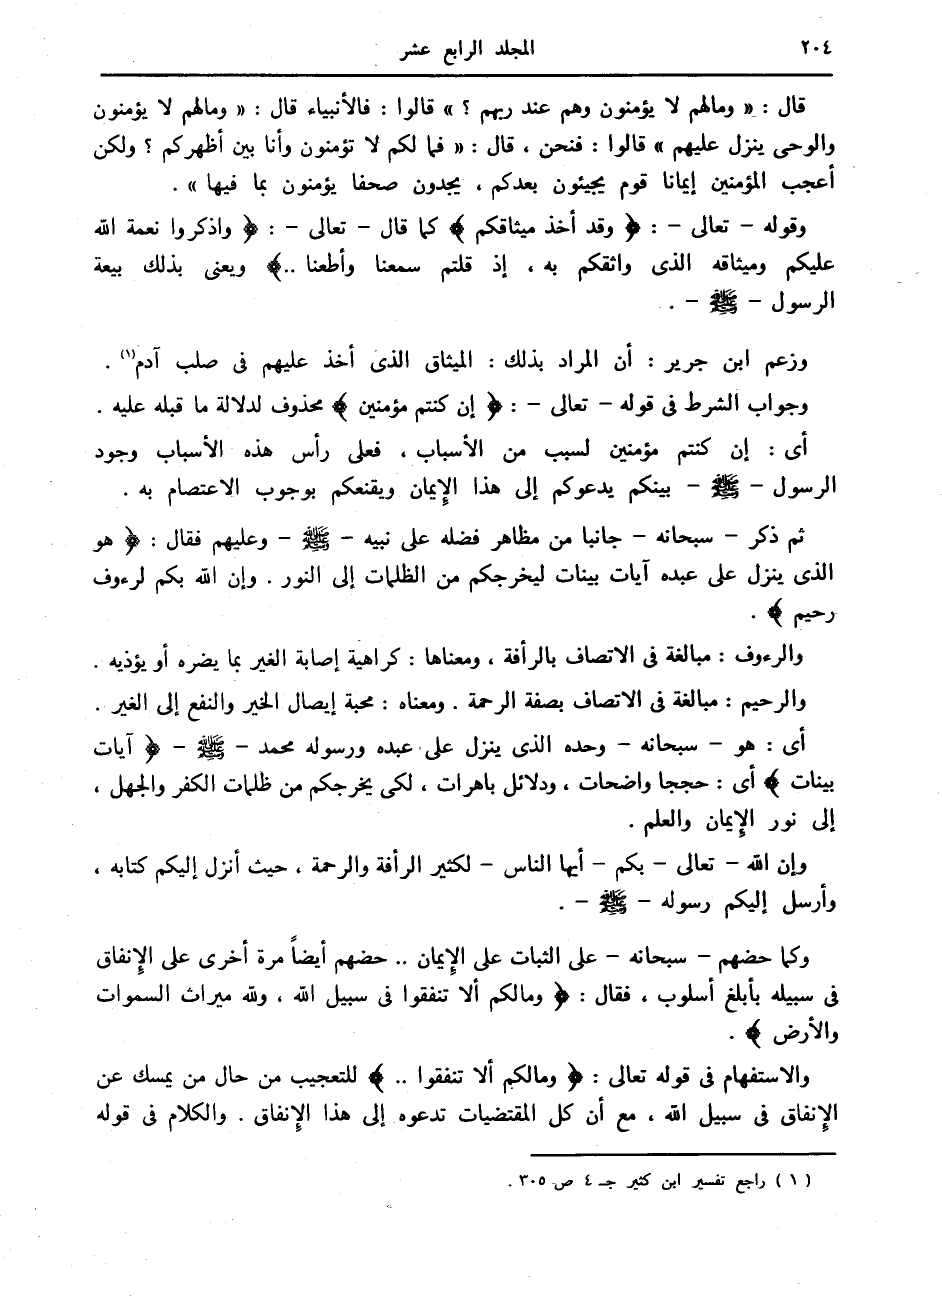 ٢٠٤ المجلد الرابع عشر
قال : « ومالهم لا يؤمنون وهم عند ربهم ؟ » قالوا : فالأنبياء قال : « ومالهم لا يؤمنون
والوحى ينزل عليهم » قالوا : فنحن ، قال : « فما لكم لا تؤمنون وأنا بين أظهركم ؟ ولكن
أعجب المؤمنين إيمانا قوم يجيئون بعدكم ، يجدون صحفا يؤمنون بما فيها » .
وقوله – تعالى – : ﴿ وقد أخذ ميثاقكم ﴾ كما قال – تعالى – : ﴿ واذكروا نعمة الله
عليكم وميثاقه الذى واثقكم به ، إذ قلتم سمعنا وأطعنا ..﴾ ويعنى بذلك بيعة
الرسول – ﷺ – .
وزعم ابن جرير : أن المراد بذلك : الميثاق الذى أخذ عليهم فى صلب آدم(١) .
وجواب الشرط فى قوله – تعالى – : ﴿ إن كنتم مؤمنين ﴾ محذوف لدلالة ما قبله عليه .
أى : إن كنتم مؤمنين لسبب من الأسباب ، فعلى رأس هذه الأسباب وجود
الرسول – ﷺ – بينكم يدعوكم إلى هذا الإيمان ويقنعكم بوجوب الاعتصام به .
ثم ذكر – سبحانه – جانبا من مظاهر فضله على نبيه – ﷺ – وعليهم فقال : ﴿ هو
الذى ينزل على عبده آيات بينات ليخرجكم من الظلمات إلى النور . وإن الله بكم لرءوف
رحيم ﴾ .
والرءوف : مبالغة فى الاتصاف بالرأفة ، ومعناها : كراهية إصابة الغير بما يضره أو يؤذيه .
والرحيم : مبالغة فى الاتصاف بصفة الرحمة . ومعناه : محبة إيصال الخير والنفع إلى الغير .
أى : هو – سبحانه – وحده الذى ينزل على عبده ورسوله محمد – ﷺ – ﴿ آيات
بينات ﴾ أى : حججا واضحات ، ودلائل باهرات ، لكى يخرجكم من ظلمات الكفر والجهل ،
إلى نور الإيمان والعلم .
وإن الله – تعالى – بكم – أيها الناس – لكثير الرأفة والرحمة ، حيث أنزل إليكم كتابه ،
وأرسل إليكم رسوله – ﷺ – .
وكما حضهم – سبحانه – على الثبات على الإيمان .. حضهم أيضاً مرة أخرى على الإنفاق
فى سبيله بأبلغ أسلوب ، فقال : ﴿ ومالكم ألا تنفقوا فى سبيل الله ، ولله ميراث السموات
والأرض ﴾ .
والاستفهام فى قوله تعالى : ﴿ ومالكم ألا تنفقوا .. ﴾ للتعجيب من حال من يمسك عن
الإنفاق فى سبيل الله ، مع أن كل المقتضيات تدعوه إلى هذا الإنفاق . والكلام فى قوله
( ١ ) راجع تفسير ابن كثير جـ ٤ ص ٣٠٥ .